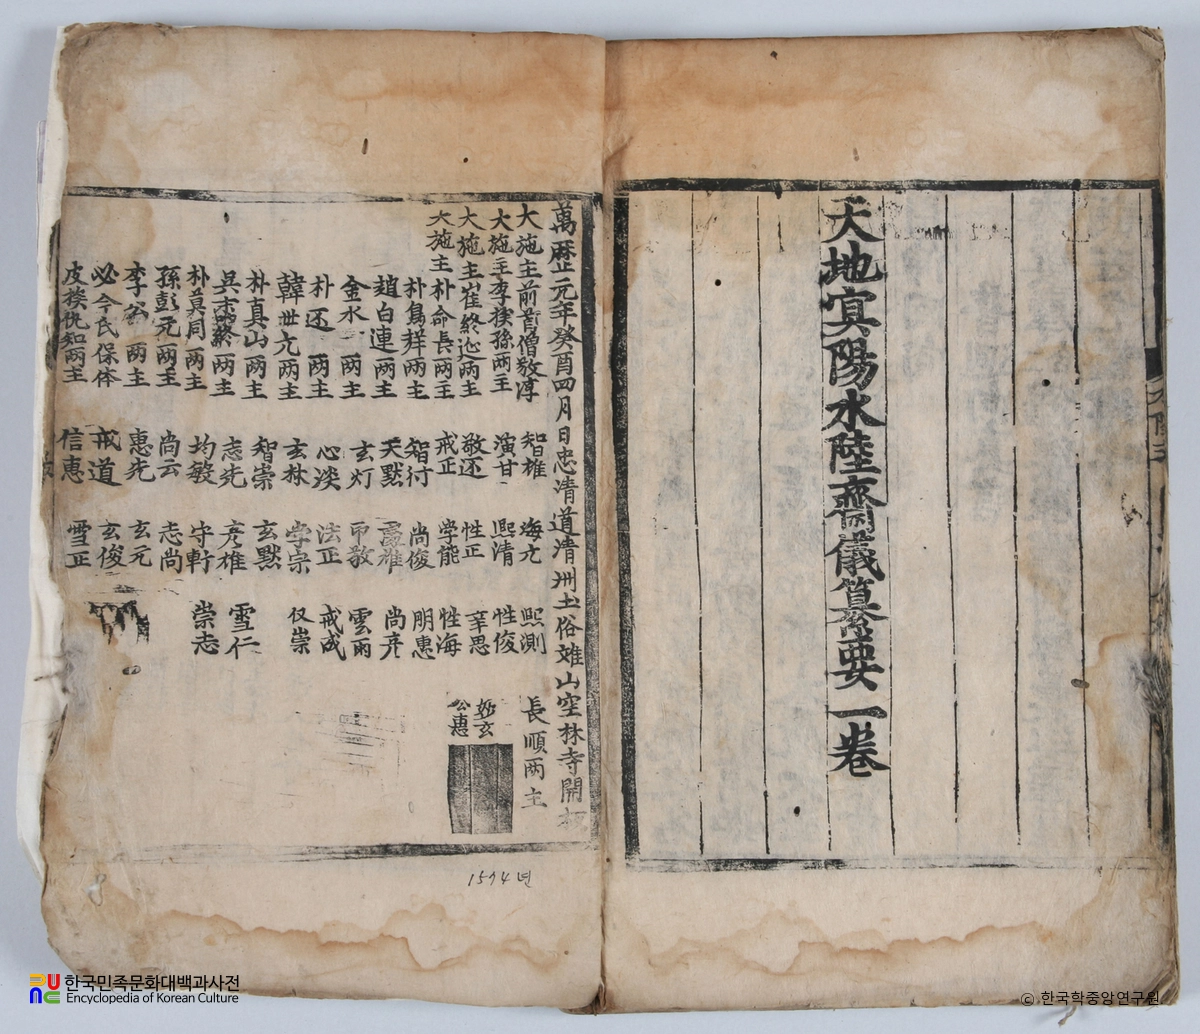 天地冥陽水陸齋儀纂要一卷
萬曆元年癸酉四月日忠清道清州土俗離山空林寺開板
大施主前首僧敬淳 智雄 海元 熙測 長順两主
大施主李揆孫两主 演甘 熙清 性俊
大施主崔終延两主 敬还 性正 幸思 妙玄
大施主朴命長两主 戒正 學能 性海 公惠
朴為祥两主 智行 尚俊 明惠
趙白連两主 天默 雄 尚彦
金水 两主 玄灯 印敬 雲雨
朴还 两主 心淡 法正 戒成
韓世元两主 玄林 学宗 仅崇
朴真山两主 智崇 玄默
吳末終两主 志先 彦雄 雪仁
朴莫同两主 均敏 守軒 崇志
孫彭元两主 尚云 志尚
李 两主 惠先 玄元
必今氏保体 戒道 玄俊
皮揆仇知两主 信惠 雪正
1574년
8
한국민족문화대백과사전
Encyclopedia of Korean Culture
© 한국학중앙연구원